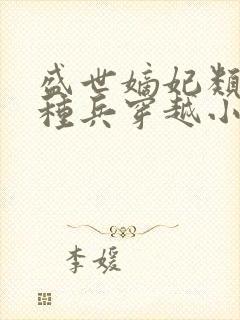 盛世嫡妃類
種兵穿越小
李媛